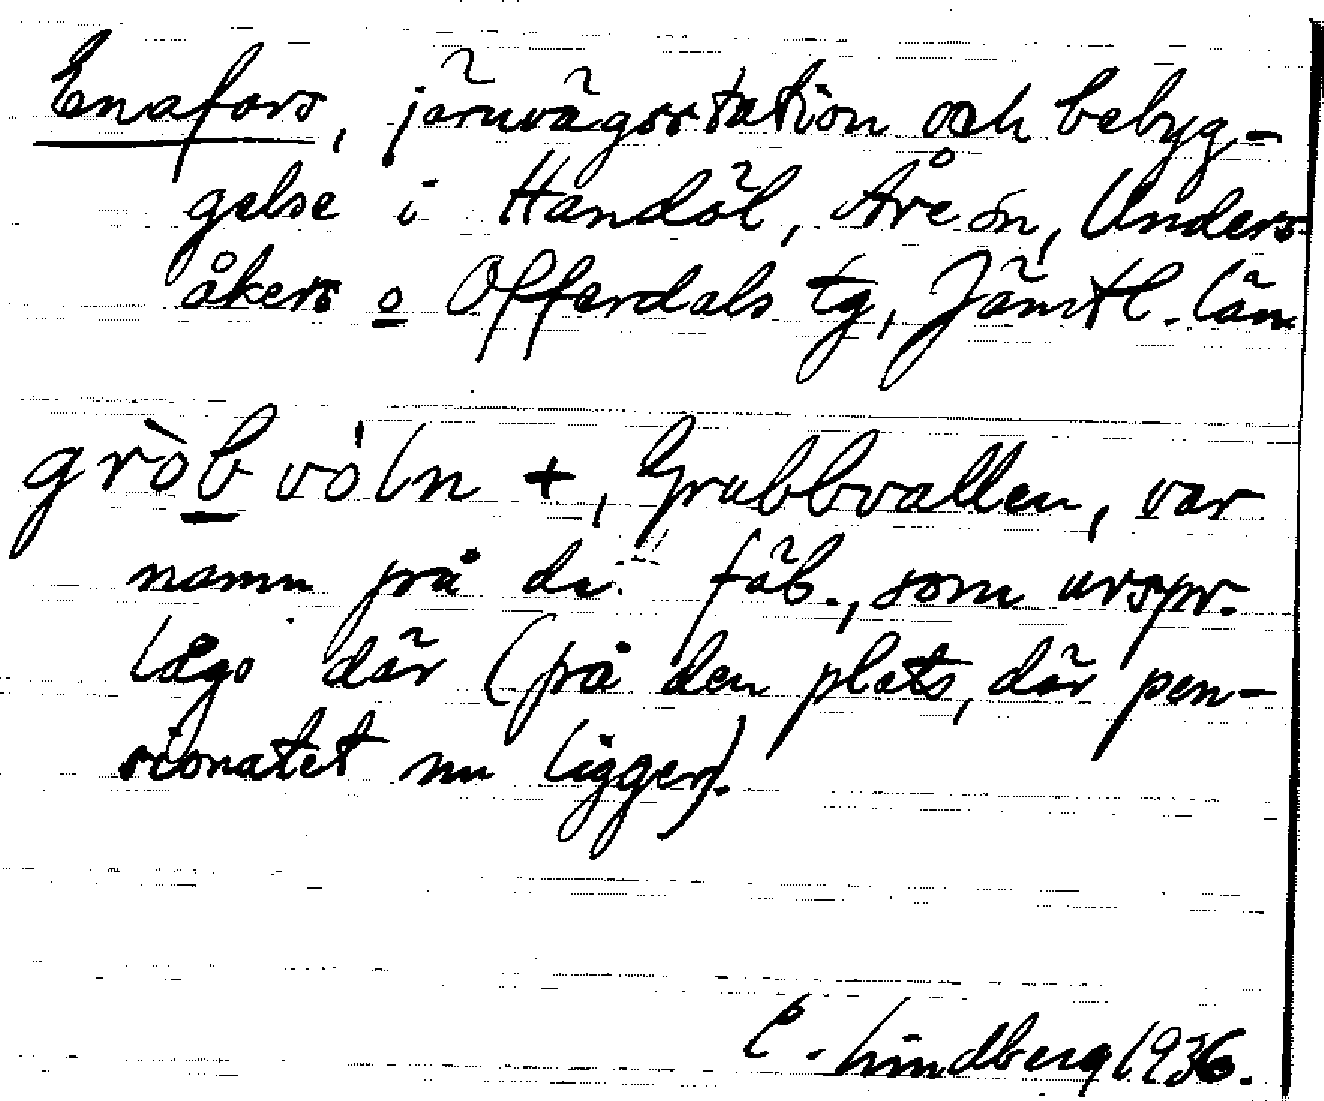 Enafors, järnvägsstation och bebyg-
gelse i Handöl, Åre sn, Unders-
åkers o Offerdals tg, Jämtl. län
gròb vóln +, Grubbvallen, var
namn på de fäb., som urspr.
lågo där (på den plats, där pen-
sionatet nu ligger).
E. Lindberg 1936.